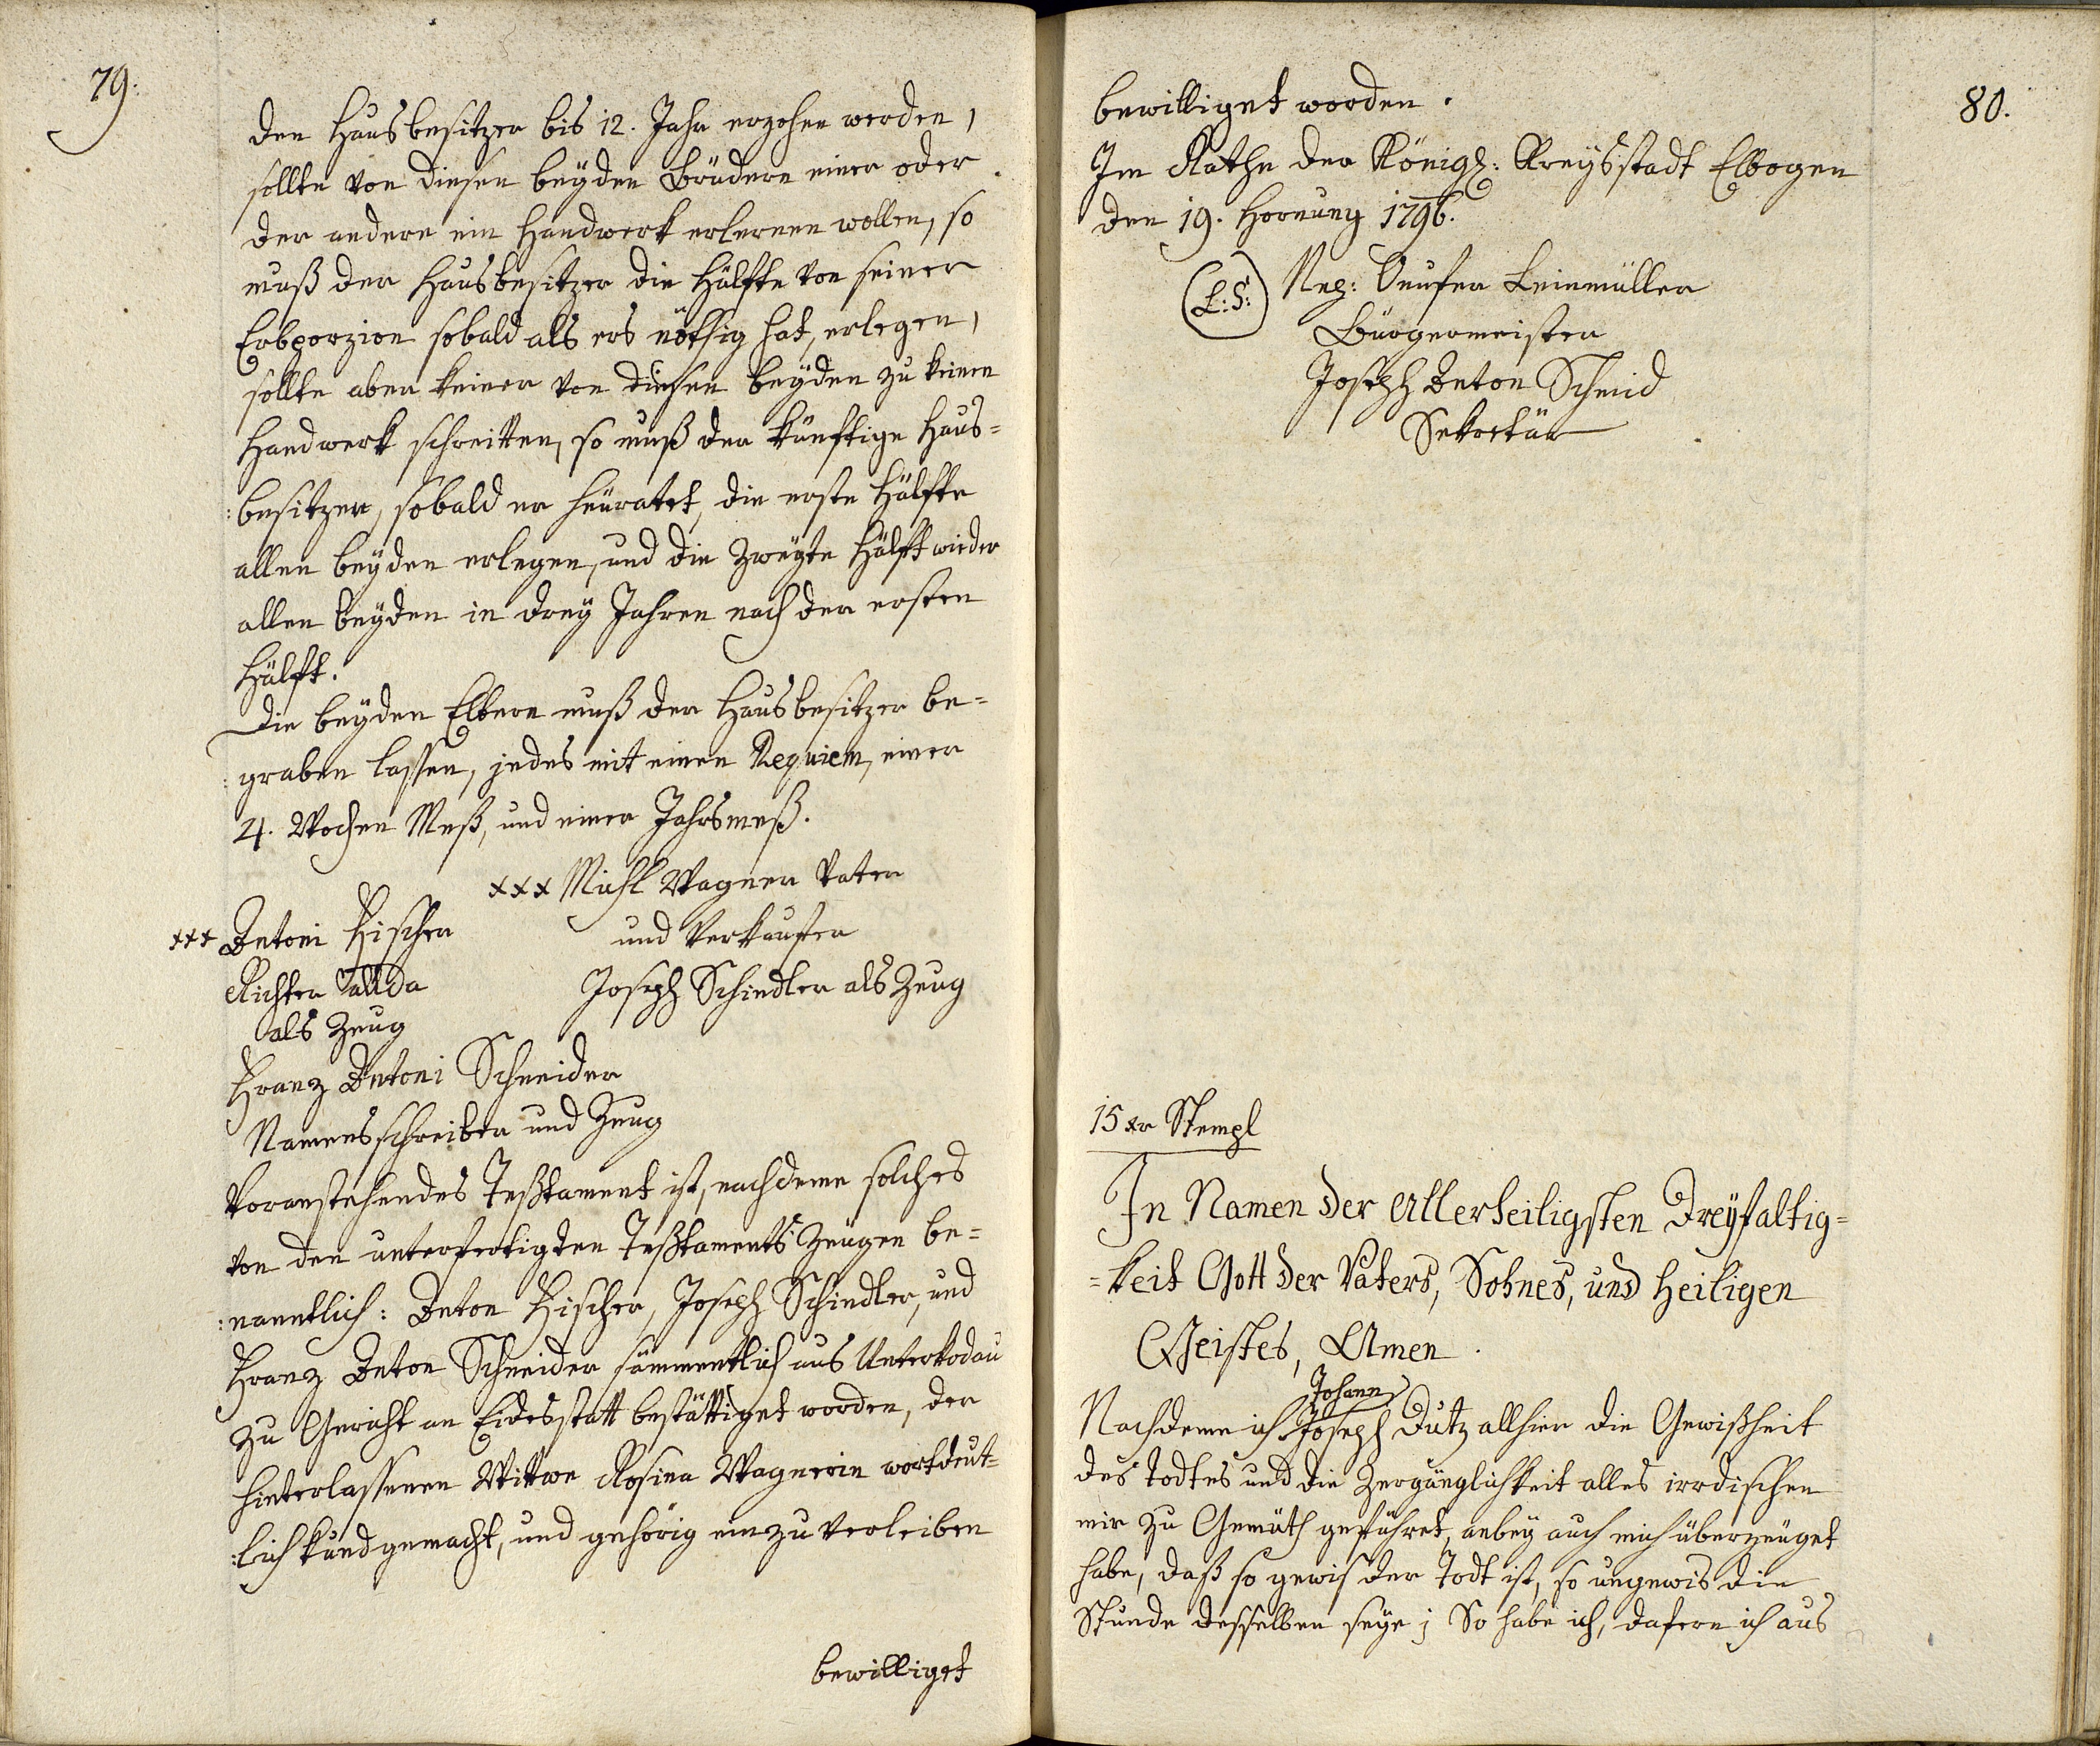 79.
den Hausbesitzer bis 12. Jahr erzohen werden,
sollte von diesen beyden Brüdern einer oder
der andere ein Handwerk erlernen wollen, so
muß der Hausbesitzer die Hälfte von seiner
Erbporzion sobald als ers nöthig hat, erlegen,
sollte aber keiner von diesen beyden zu keinen
Handwerk schreitten, so muß der künftige Haus=
:besitzer, sobald er heuratet, die erste Hälfte
allen beyden erlegen, und die zweyte Hälft wieder
allen beyden in drey Jahren nach der ersten
Hälft.
Die beyden Eltern muß der Hausbesitzer be=
:graben lassen, jedes mit einen Requiem, einer
4. Wochen Meß, und einer Jahrsmeß.
xxx Michl Wagner Vater
und Verkaufer
xxx Antoni Fischer
Richter allda
als Zeug
Joseph Schindler als Zeug
Franz Antoni Schneider
Namensschreiber und Zeug
Voranstehendes Testtament ist, nachdeme solches
von den unterfertigten Testtaments Zeugen be=
:nanntlich: Anton Fischer, Joseph Schindler, und
Franz Anton Schneider sämmentlich aus Unterkodau
zu Gericht an Eidesstatt bestättiget worden, der
hinterlassenen Wittwe Rosina Wagnerin wortdeut=
:lich kundgemacht, und gehörig einzuverleiben
bewilliget
80.
bewilliget worden.
Im Rathe der Königl: Kreysstadt Elbogen
den 19. Hornung 1796.
(L:S:)
Bürgermeister
Joseph Anton Schmid
Sekretär
15 xr Stempl
In Namen der Allerheiligsten Dreyfaltig=
=keit Gott der Vaters, Sohnes, und Heiligen
Geistes, Amen.
Johann
Nachdeme ich Joseph Dutz allhier die Gewißheit
des Todtes und die Zergänglichkeit alles irrdischen
mir zu Gemüth geführet, anbey auch mich überzeuget
habe, daß so gewis der Todt ist, so ungewis die
Stunde desselben seye; So habe ich, dafern ich aus